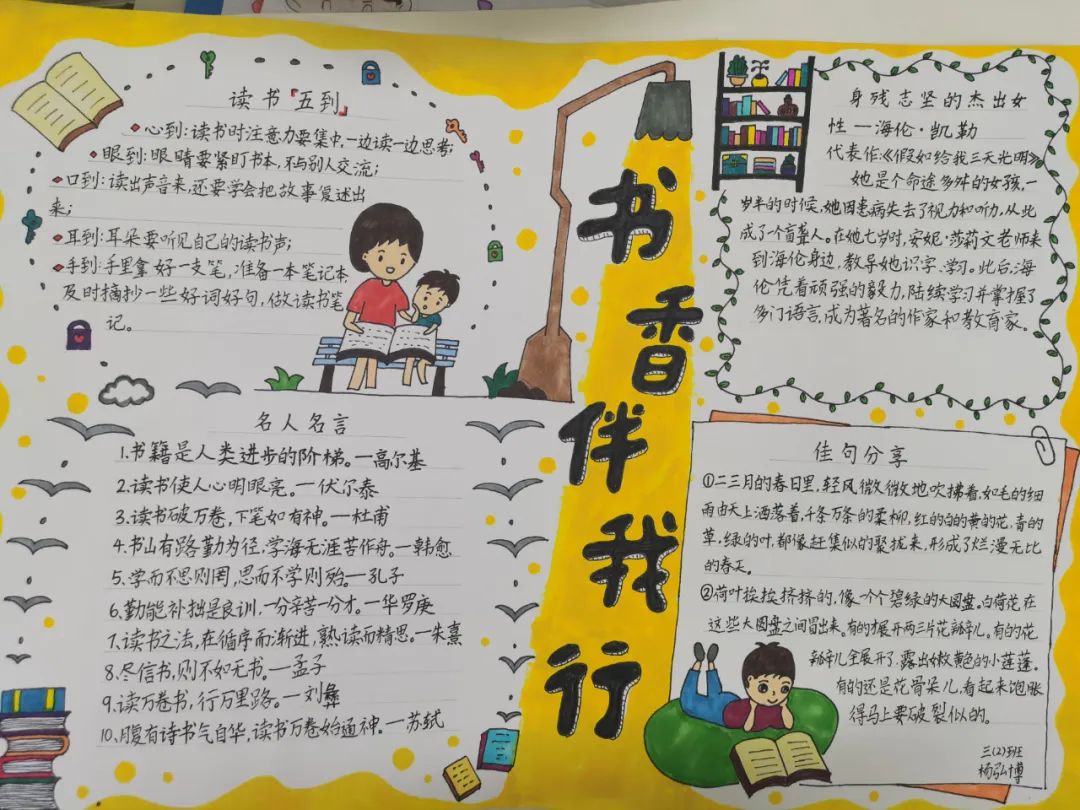 读书『五到』
心到:读书时注意力要集中,一边读一边思考;
眼到:眼睛要紧盯书本,不与别人交流;
口到:读出声音来,还要学会把故事复述出
来;
耳到:耳朵要听见自己的读书声;
手到:手里拿好一支笔,准备一本笔记本,
及时摘抄一些好词好句,做读书笔
记。
名人名言
1.书籍是人类进步的阶梯。—高尔基
2.读书使人心明眼亮。—伏尔泰
3.读书破万卷,下笔如有神。—杜甫
4.书山有路勤为径,学海无涯苦作舟。—韩愈
5.学而不思则罔,思而不学则殆。—孔子
6.勤能补拙是良训,一分辛苦一分才。—华罗庚
7.读书之法,在循序而渐进,熟读而精思。—朱熹
8.尽信书,则不如无书。—孟子
9.读万卷书,行万里路。—刘彝
10.腹有诗书气自华,读书万卷始通神。—苏轼
书香伴我行
身残志坚的杰出女
性—海伦·凯勒
代表作:《假如给我三天光明》
她是个命途多舛的女孩,一
岁半的时候,她因患病失去了视力和听力,从此
成了个盲聋人。在她七岁时,安妮·莎莉文老师来
到海伦身边,教导她识字、学习。此后,海
伦凭着顽强的毅力,陆续学习并掌握了
多门语言,成为著名的作家和教育家。
佳句分享
①二三月的春日里,轻风微微地吹拂着,如毛的细
雨由天上洒落着,千条万条的柔柳,红的白的黄的花,青的
草,绿的叶,都像赶集似的聚拢来,形成了烂漫无比
的春天。
②荷叶挨挨挤挤的,像一个个碧绿的大圆盘。白荷花在
这些大圆盘之间冒出来。有的才展开两三片花瓣儿。有的花
瓣儿全展开了,露出嫩黄色的小莲蓬。
有的还是花骨朵儿,看起来饱胀
得马上要破裂似的。
三(2)班
杨弘博